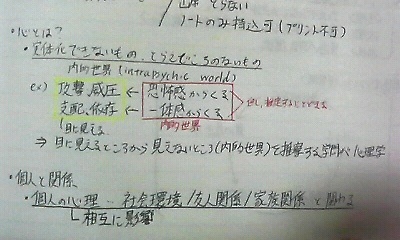 山本 とらない
ノートのみ持込可(プリント不可)
・心とは?
・実体化できないもの、とらえどころのないもの
内的世界(intrapsychic world)
ex) 攻撃、威圧 ← 恐怖感からくる
支配、依存 ← 一体感からくる
但し、推定することはできる
目に見える 内的世界
⇒ 目に見えるところから見えないところ(内的世界)を推察する学問が心理学
・個人と関係
・個人の心理… 社会環境/友人関係/家族関係 と関わる
相互に影響